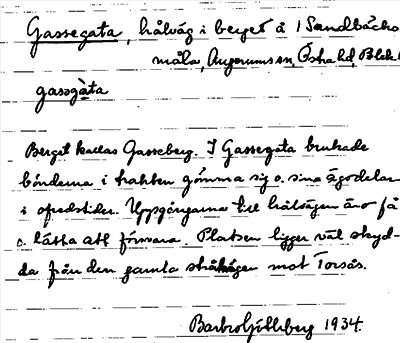 Gassegata, hålväg i berget å 1 Sandbäcks-
måla, Augerums sn, Östra hd, Blek.
gasagàta
Berget kallas Gasseberg. I Gassegata brukade
bönderna i trakten gömma sig o. sina ägodelar
i ofredstider. Uppgångarna till hålvägen äro få
o. lätta att försvara. Platsen ligger väl skyd-
da från den gamla stråkvägen mot Torsås.
Barbro 1934.